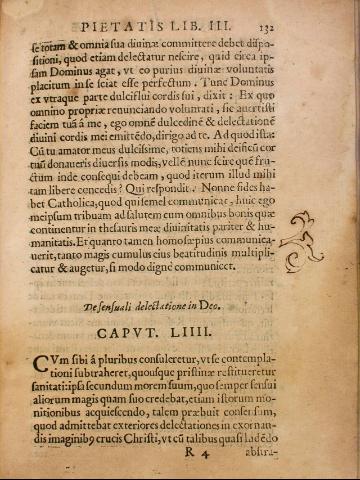 PIETATIS LIB. III. 132
se totam & omnia sua diuinæ committere debet dispo-
sitioni, quod etiam delectatur nescire, quid circa ip-
sam Dominus agat, vt eo purius diuinæ voluntatis
placitum in se sciat esse perfectum. Tunc Dominus
ex vtraque parte dulciflui cordis sui, dixit: Ex quo
omnino propriæ renunciando voluntati, sic auertisti
faciem tuā à me, ego omnē dulcedinē & delectationē
diuini cordis mei emittēdo, dirigo ad te. Ad quod ista:
Cū tu amator meus dulcissime, totiens mihi deificū cor
tuū donaueris diuersis modis, vellē nunc scire què fru-
ctum inde consequi debeam, quod iterum illud mihi
tam libere concedis? Qui respondit. Nonne fides ha-
bet Catholica, quod qui semel communicat, huic ego
meipsum tribuam ad salutem cum omnibus bonis quæ
continentur in thesauris meæ diuinitatis pariter & hu-
manitatis. Et quanto tamen homo sæpius communica-
uerit, tanto magis cumulus eius beatitudinis multipli-
catur & augetur, si modo digne communicet.
De sensuali delectatione in Deo.
CAPVT. LIIII.
CVm sibi à pluribus consuleretur, vt se contempla-
tioni subtraheret, quousque pristinæ restitueretur
sanitati: ipsa secundum morem suum, quo semper sensui
aliorum magis quam suo credebat, etiam istorum mo-
nitionibus acquiescendo, talem præbuit consensum,
quod admittebat exteriores delectationes in exornan-
dis imaginib9 crucis Christi, vt cū talibus quasi ludēdo
R 4 abstra-